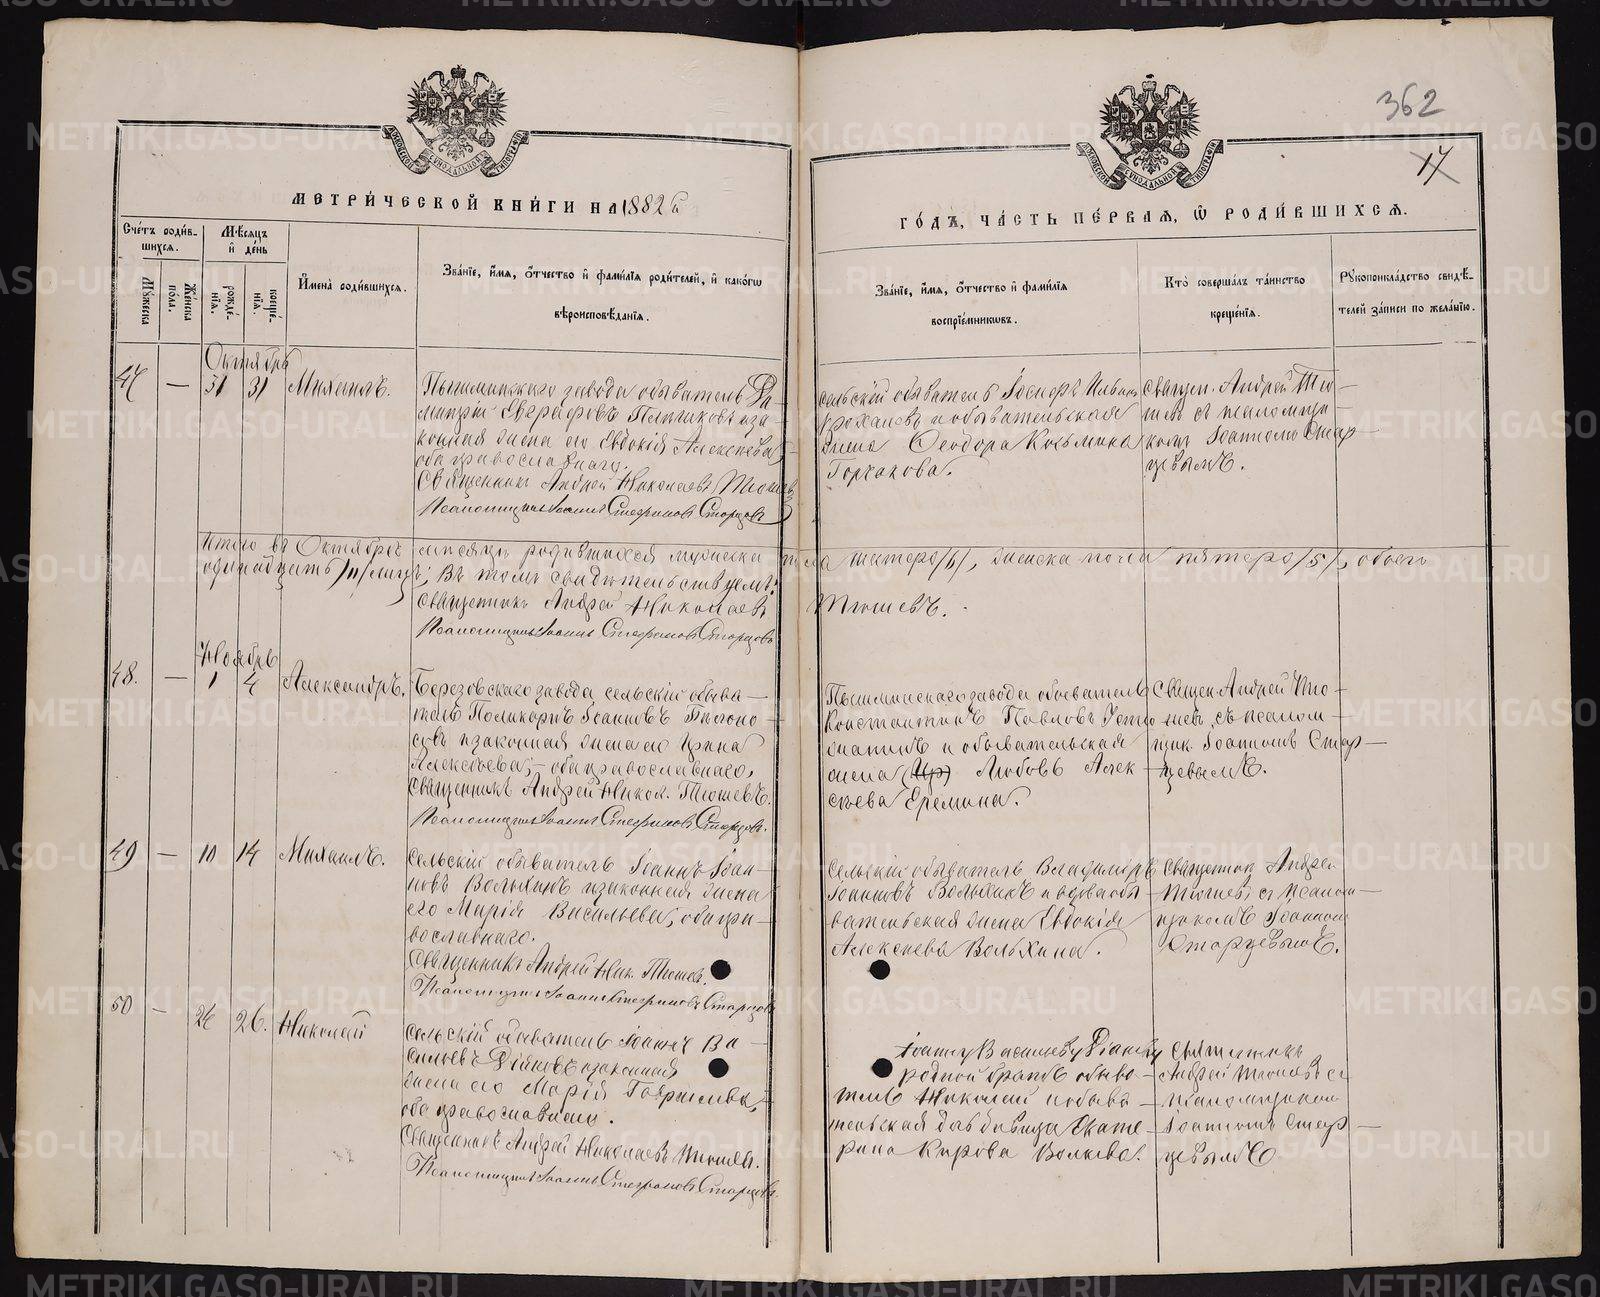 362
17
МЕТРИЧЕСКОЙ КНИГИ НА 1882й
ГОДЪ, ЧАСТЬ ПЕРВАЯ, Ѡ РОДИВШИХСЯ.
Счетъ родив-
шихся.
Мѣсяцъ
и день
Мужеска
Женска
пола.
рожде-
нія.
креще-
нія.
Имена родившихся.
Званіе, имя, отчество и фамилія родителей, и какогѡ
вѣроисповѣданія.
Званіе, имя, отчество и фамилія
воспріемникѡвъ.
Кто совершалъ таинство
крещенія.
Рукоприкладство свидѣ-
телей записи по желанію.
Октябрь
47 — 31 31 Михаилъ.
Пышминскаго завода обыватель Ди-
митрій Евграфовъ и за-
конная жена его Евдокія Алексѣева,
оба православнаго.
Священникъ Андрей Николаевъ Тюшевъ
Псаломщикъ Іоаннъ Стефановъ Старцевъ
Сельскій обыватель Іосифъ Ильинъ
и обывательская
жена Ѳеодора Козьмина
Горчакова.
Священ. Андрей Тю-
шевъ съ псаломщи-
комъ Іоанномъ Стар-
цевымъ.
Итого въ Октябрѣ мѣсяцѣ родившихся мужеска пола шестеро /6/, женска пола пятеро /5/, обоего
одинадцать /11/ лицъ; Въ томъ свидѣтельствуемъ:
Священникъ Андрей Николаевъ Тюшевъ.
Псаломщикъ Іоаннъ Стефановъ Старцевъ
Ноябрь
48. — 1 4 Александръ.
Березовскаго завода сельскій обыва-
тель Поликарпъ Іоанновъ Бѣлоно-
совъ и законная жена его Ирина
Алексѣева, — оба православнаго.
Священникъ Андрей Никол. Тюшевъ.
Псаломщикъ Іоаннъ Стефановъ Старцевъ.
Пышминскаго завода обыватель
Константинъ Павловъ Устю-
жанинъ и обывательская
жена (Ир) Любовь Алек-
сѣева Еремина.
Священ. Андрей Тю-
шевъ съ псалом-
щик. Іоанномъ Стар-
цевымъ.
49 — 10 14 Михаилъ.
Сельскій обыватель Іоаннъ Іоан-
новъ Вольхинъ и законная жена
его Марія Васильева, оба пра-
вославнаго.
Священникъ Андрей Ник. Тюшевъ.
Псаломщикъ Іоаннъ Стефановъ Старцевъ
Сельскій обыватель Владиміръ
Іоанновъ Вольхинъ и вдова обы-
вательская жена Евдокія
Алексѣева Вольхина.
Священник Андрей
Тюшевъ съ Псалом-
щикомъ Іоанномъ
Старцевымъ.
50 — 24 26. Николай
Сельскій обыватель Іоаннъ Ва-
сильевъ и законная
жена его Марія Гаврилова,
оба православнаго.
Священникъ Андрей Николаевъ Тюшевъ.
Псаломщикъ Іоаннъ Стефановъ Старцевъ.
Іоанну Васильеву
родной братъ обыва-
тель Николай и обыва-
тельская дѣвица Екате-
рина Кирова Волкова.
Священникъ
Андрей Тюшевъ съ
псаломщикомъ
Іоанномъ Стар-
цевымъ